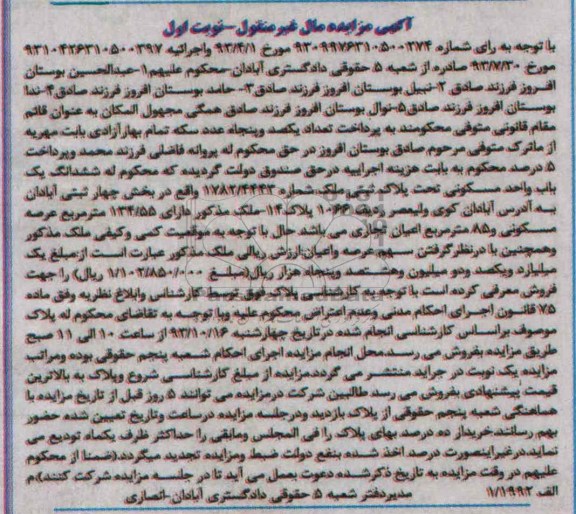 آگهی مزایده مال غیر منقول-نوبت اول
با توجه به رای شماره ۹۳۰۹۹۷۶۳۱۰۵۰۰۲۷۴ مورخ ۹۳/۴/۱ واجرائیه ۹۳۱۰۴۲۶۳۱۰۵۰۰۳۹۷
مورخ ۹۳/۷/۳۰ صادره از شعبه ۵ حقوقی دادگستری آبادان-محکوم علیهم۱-عبدالحسین بوستان
افروز فرزند صادق ۲-نبیل بوستان افروز فرزند صادق۳- حامد بوستان افروز فرزند صادق۴-ندا
بوستان افروز فرزند صادق۵-نوال بوستان افروز فرزند صادق همگی مجهول المکان به عنوان قائم
مقام قانونی متوفی محکومند به پرداخت تعداد یکصد وپنجاه عدد سکه تمام بهارآزادی بابت مهریه
از ماترک متوفی مرحوم صادق بوستان افروز در حق محکوم له پروانه فاضلی فرزند محمد وپرداخت
۵ درصد محکوم به بابت هزینه اجراییه درحق صندوق دولت گردیده که محکوم له ششدانگ یک
باب واحد مسکونی تحت پلاک ثبتی ملک شماره ۱۷۸۲/۴۴۴۳ واقع در بخش چهار ثبتی آبادان
به آدرس آبادان کوی ولیعصر ردیف ۱۰۶۶ پلاک۱۴-ملک مذکور دارای ۱۳۴/۵۵ مترمربع عرصه
مسکونی و۸۵ مترمربع اعیان تجاری می باشد حال با توجه به موقعیت کمی وکیفی ملک مذکور
وهمچنین با درنظرگرفتن سهم عرصه واعیان ارزش ریالی ملک مذکور عبارت است از:مبلغ یک
میلیارد ویکصد ودو میلیون وهشتصد وپنجاه هزار ریال(مبلغ ۱/۱۰۲/۸۵۰/۰۰۰ ریال) را جهت
فروش معرفی کرده است با توجه به کارشناسی پلاک فوق توسط کارشناس وابلاغ نظریه وفق ماده
۷۵ قانون اجرای احکام مدنی وعدم اعتراض محکوم علیه وبا توجه به تقاضای محکوم له پلاک
موصوف براساس کارشناسی انجام شده در تاریخ چهارشنبه ۹۳/۱۰/۱۶ از ساعت ۱۰ الی ۱۱ صبح
طریق مزایده بفروش می رسد.محل انجام مزایده اجرای احکام شعبه پنجم حقوقی بوده ومراتب
مزایده یک نوبت در جراید منتشر می گردد.مزایده از مبلغ کارشناسی شروع وپلاک به بالاترین
قیمت پیشنهادی بفروش می رسد طالبین شرکت درمزایده می توانند ۵ روز قبل از تاریخ مزایده با
هماهنگی شعبه پنجم حقوقی از پلاک بازدید ودرجلسه مزایده درساعت وتاریخ تعیین شده حضور
بهم رسانند.خریدار ده درصد بهای پلاک را فی المجلس ومابقی را حداکثر ظرف یکماه تودیع می
نماید.درغیراینصورت درصد اخذ شده بنفع دولت ضبط ومزایده تجدید میگردد.(ضمنا از محکوم
علیهم در وقت مزایده به تاریخ ذکرشده دعوت بعمل می آید تا در جلسه مزایده شرکت کنند)م
الف ۱/۱۹۹۲ مدیردفتر شعبه ۵ حقوقی دادگستری آبادان-انصاری